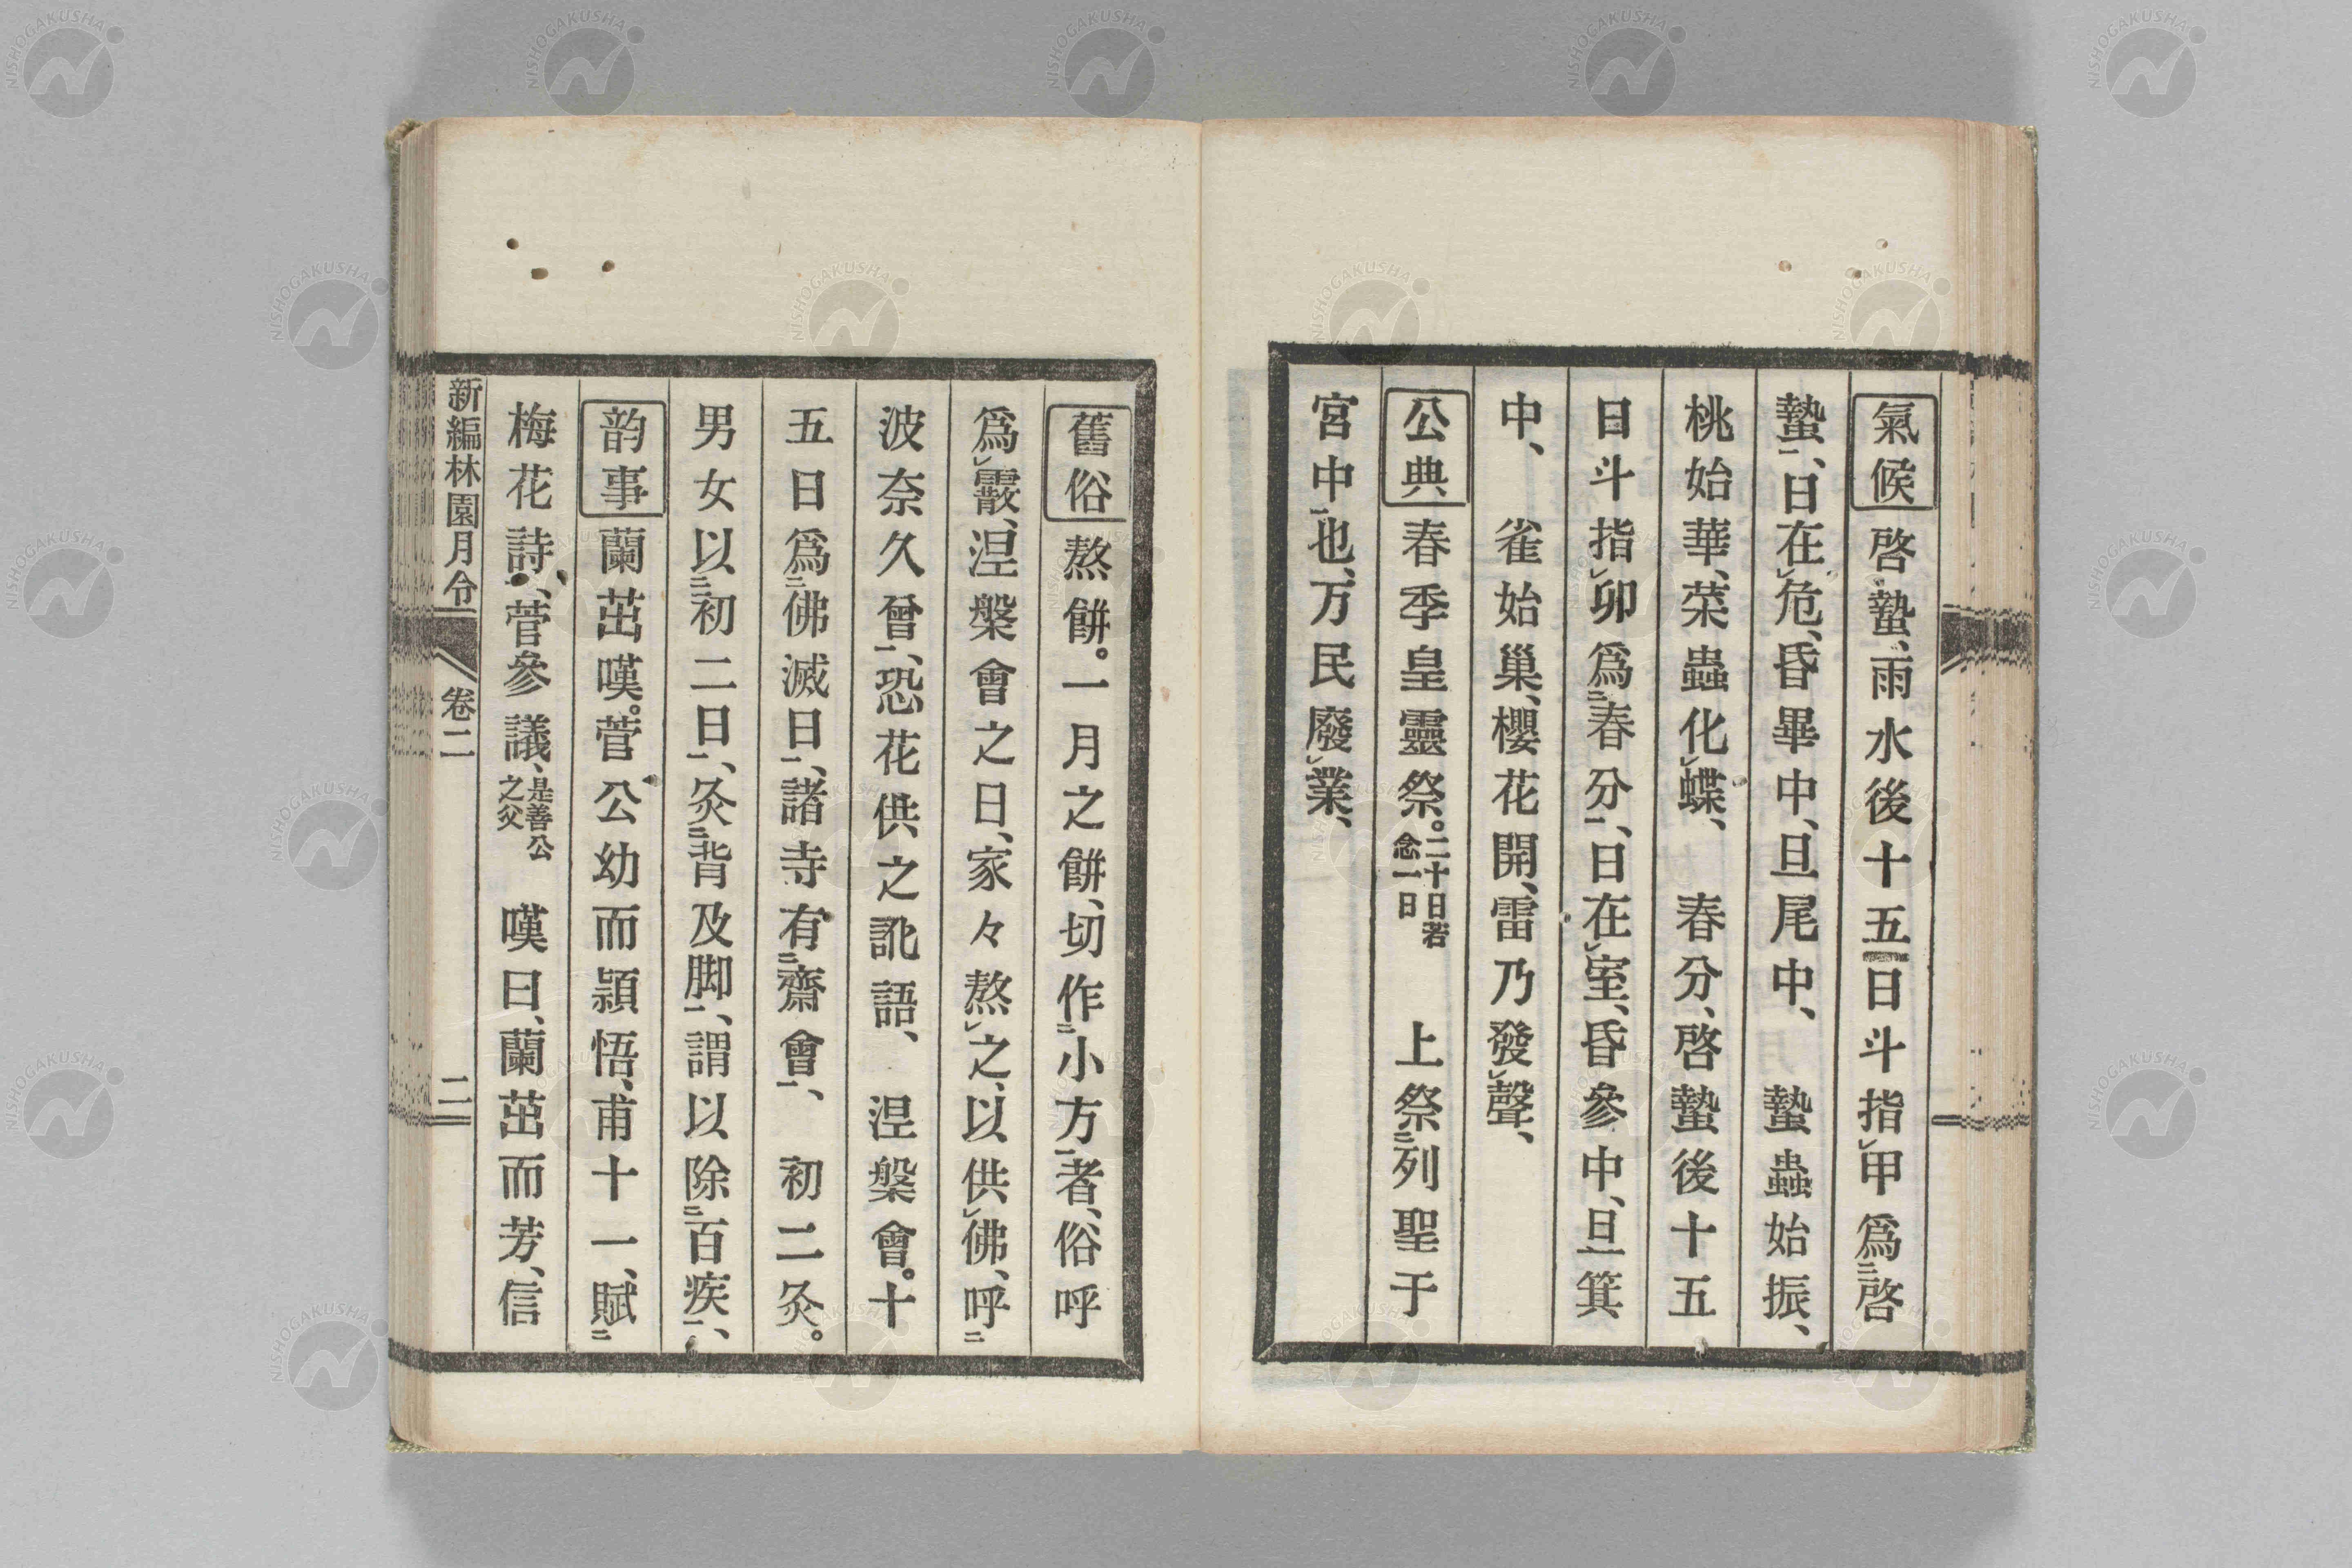 氣候 啓蟄、雨水後十五日斗指㆑甲爲㆓啓
蟄㆒、日在㆑危、昏畢中、旦尾中、 蟄蟲始振、
桃始華、菜蟲化㆑蝶、 春分、啓蟄後十五
日斗指㆑卯爲㆓春分㆒、日在㆑室、昏參中、旦箕
中、 雀始巢、櫻花開、雷乃發㆑聲、
公典 春季皇靈祭。二十日若念一日 上祭㆓列聖于
宮中㆒也、万民廢㆑業、
舊俗 熬餠。一月之餠、切作㆓小方㆒者、俗呼
爲㆑霰、涅槃會之日、家々熬㆑之、以供㆑佛、呼㆓
波奈久曾㆒、恐花供之訛語、 涅槃會。十
五日爲㆓佛滅日㆒、諸寺有㆓齋會㆒、 初二灸。
男女以㆓初二日㆒、灸㆓背及脚㆒、謂以除㆓百疾㆒、
韵事 蘭茁嘆。菅公幼而頴悟、甫十一、賦㆓
梅花詩㆒、菅參議、是善公之父 嘆曰、蘭茁而芳、信
新編林園月令 卷二 二
NISHOGAKUSHA